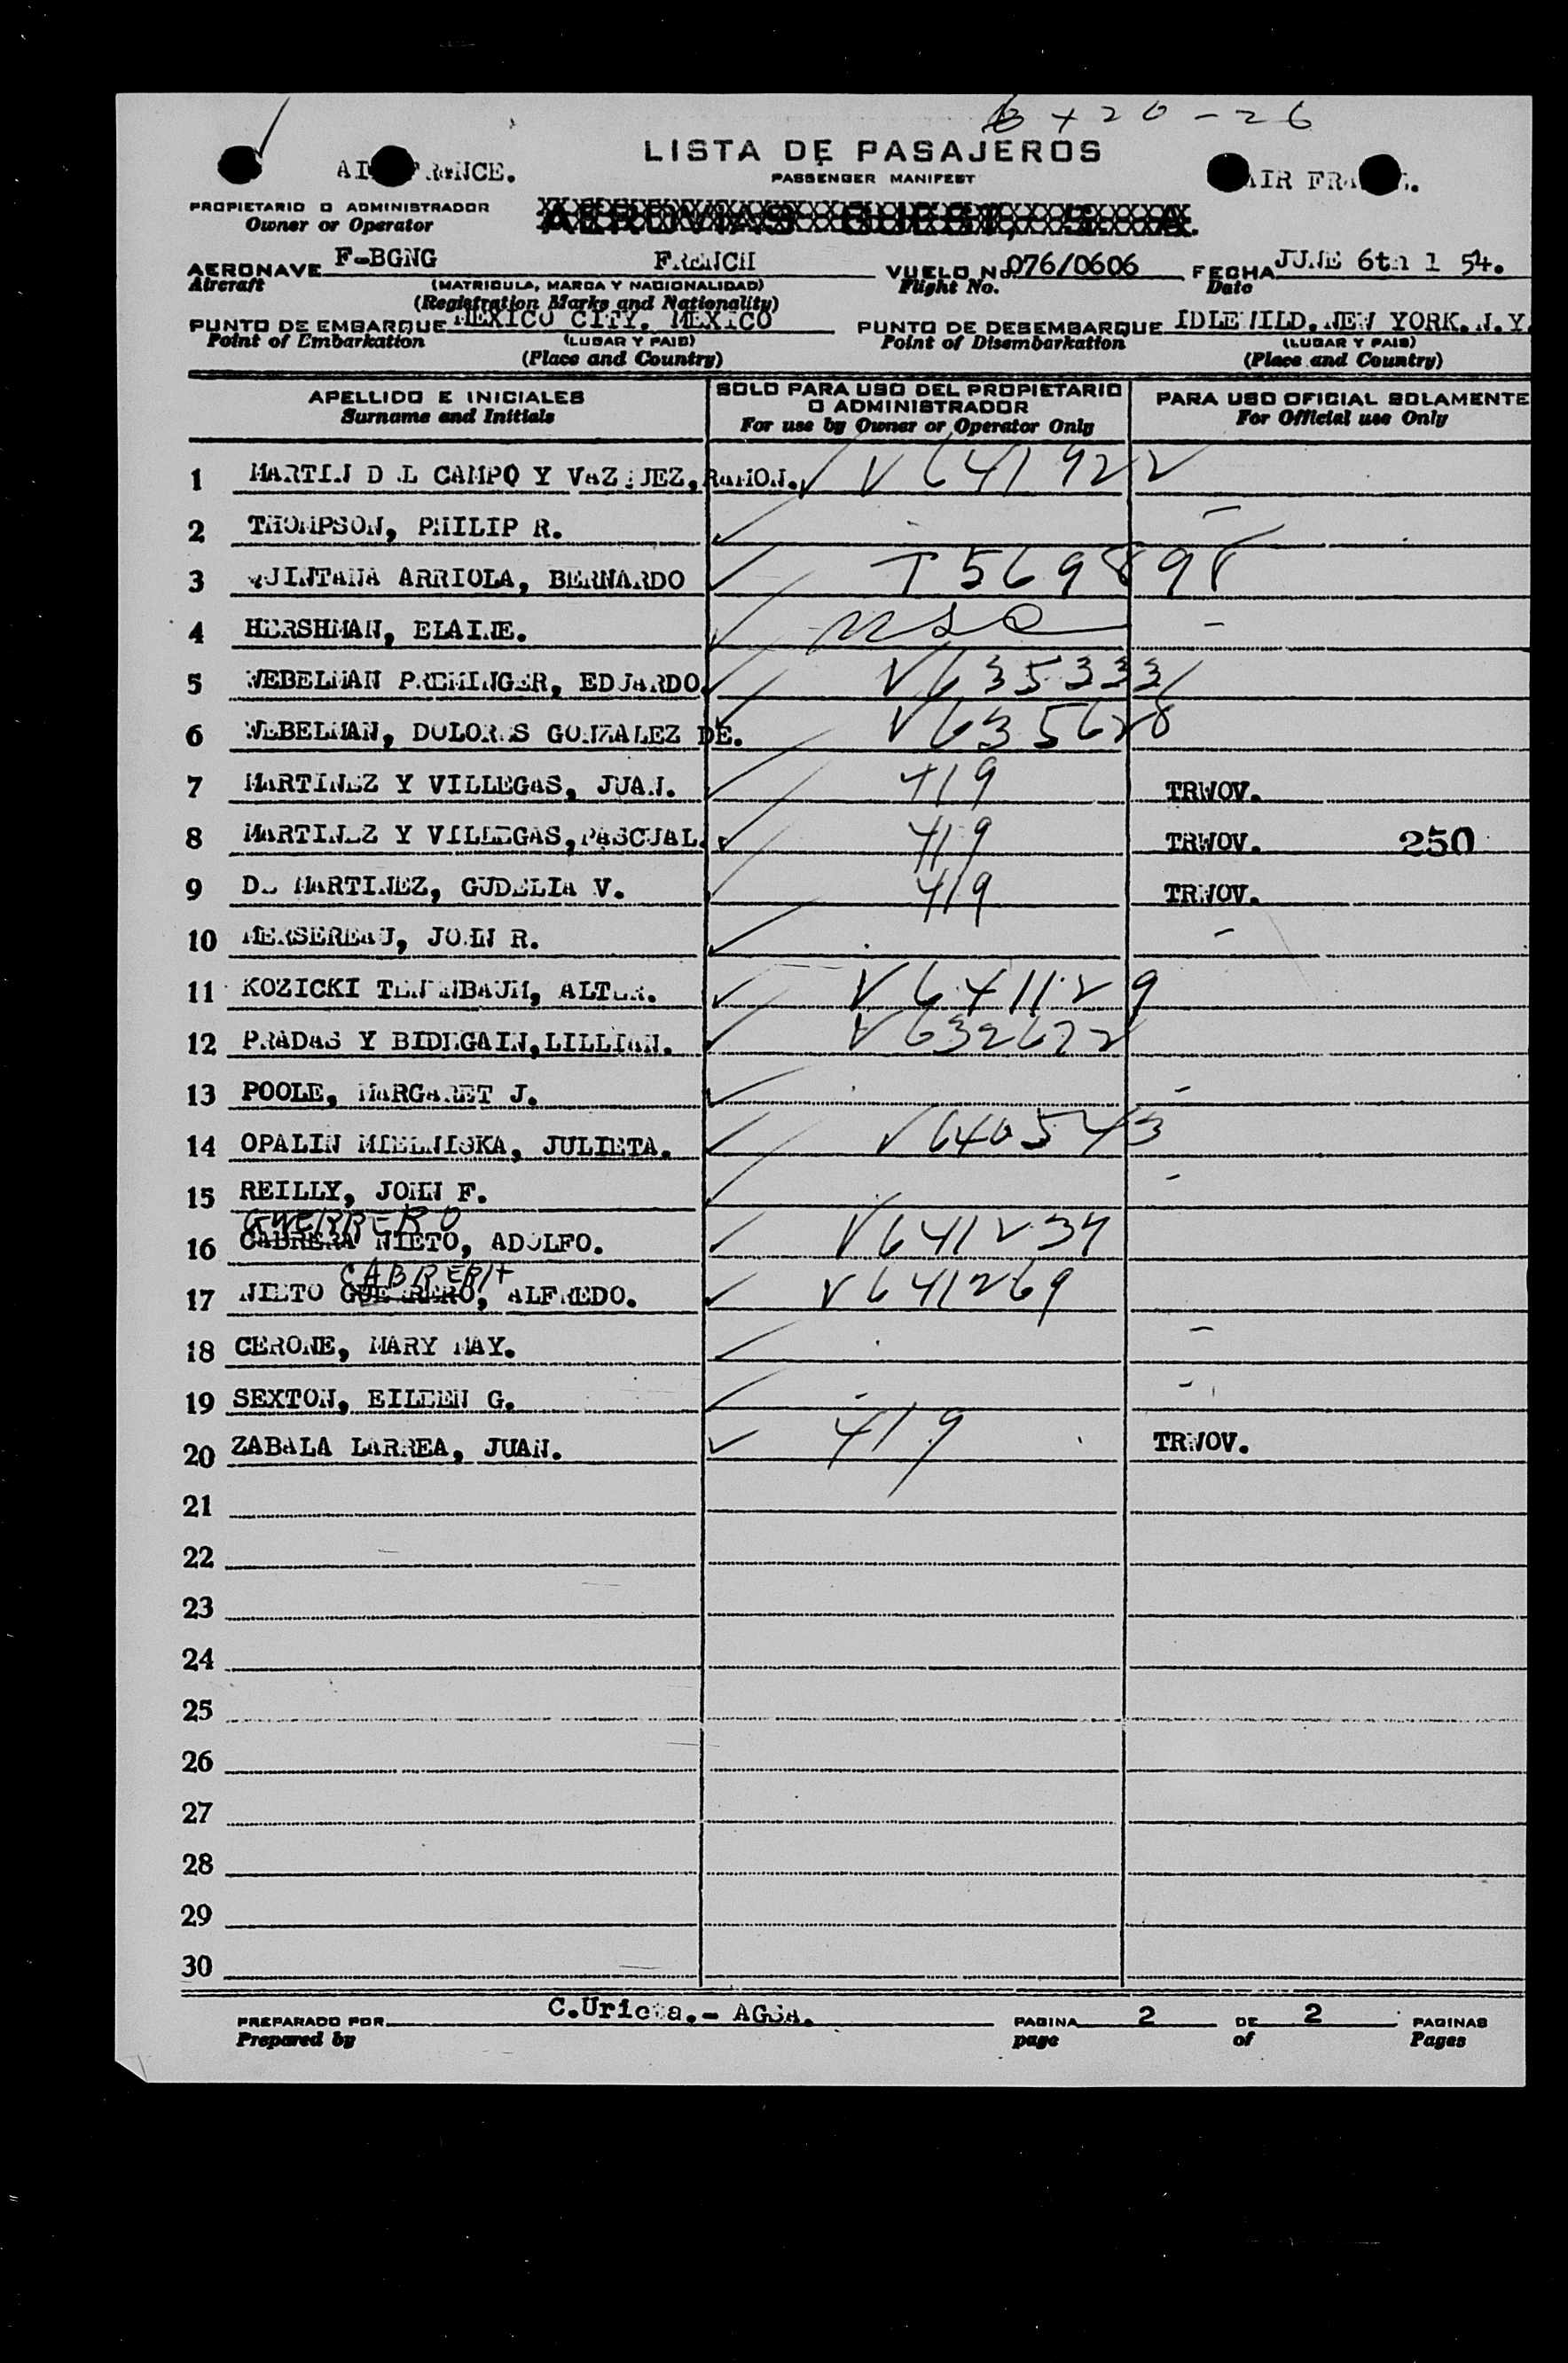 6 + 20 - 26
LISTA DE PASAJEROS
PASSENGER MANIFEST
AIR FRANCE. AIR FRANCE.
PROPIETARIO O ADMINISTRADOR
Owner or Operator
AEROVIAS GUEST, S. A.
AERONAVE F-BGNG FRENCH VUELO No. 076/0606 FECHA JUNE 6th 1 54.
Aircraft (MATRICULA, MARCA Y NACIONALIDAD) Flight No. Date
(Registration Marks and Nationality)
PUNTO DE EMBARQUE MEXICO CITY, MEXICO PUNTO DE DESEMBARQUE IDLEWILD, NEW YORK. N.Y.
Point of Embarkation (LUGAR Y PAIS) Point of Disembarkation (LUGAR Y PAIS)
(Place and Country) (Place and Country)
APELLIDO E INICIALES SOLO PARA USO DEL PROPIETARIO O ADMINISTRADOR PARA USO OFICIAL SOLAMENTE
Surname and Initials For use by Owner or Operator Only For Official use Only
1 MARTIN DEL CAMPO Y VAZQUEZ, RAMON. V641922
2 THOMPSON, PHILIP R. -
3 QUINTANA ARRIOLA, BERNARDO T569898
4 HERSHMAN, ELAINE. USC -
5 WEBELMAN PREMINGER, EDUARDO. V635333
6 WEBELMAN, DOLORES GONZALEZ DE. V635628
7 MARTINEZ Y VILLEGAS, JUAN. 419 TRWOV.
8 MARTINEZ Y VILLEGAS, PASCUAL. 419 TRWOV. 250
9 DE MARTINEZ, GUDELIA V. 419 TRWOV.
10 MERSEREAU, JOHN R. -
11 KOZICKI TENENBAUM, ALTER. V641129
12 PRADAS Y BIDEGAIN, LILLIAN. V632622
13 POOLE, MARGARET J. -
14 OPALIN MIELNISKA, JULIETA. V640543
15 REILLY, JOHN F. -
GUERRERO
16 CABRERA NIETO, ADOLFO. V641234
CABRERA
17 NIETO GUERRERO, ALFREDO. V641269
18 CERONE, MARY MAY. -
19 SEXTON, EILEEN G. - -
20 ZABALA LARREA, JUAN. 419 TRWOV.
21
22
23
24
25
26
27
28
29
30
PREPARADO POR C.Urieta.- AGSA. PAGINA 2 DE 2 PAGINAS
Prepared by page of Pages